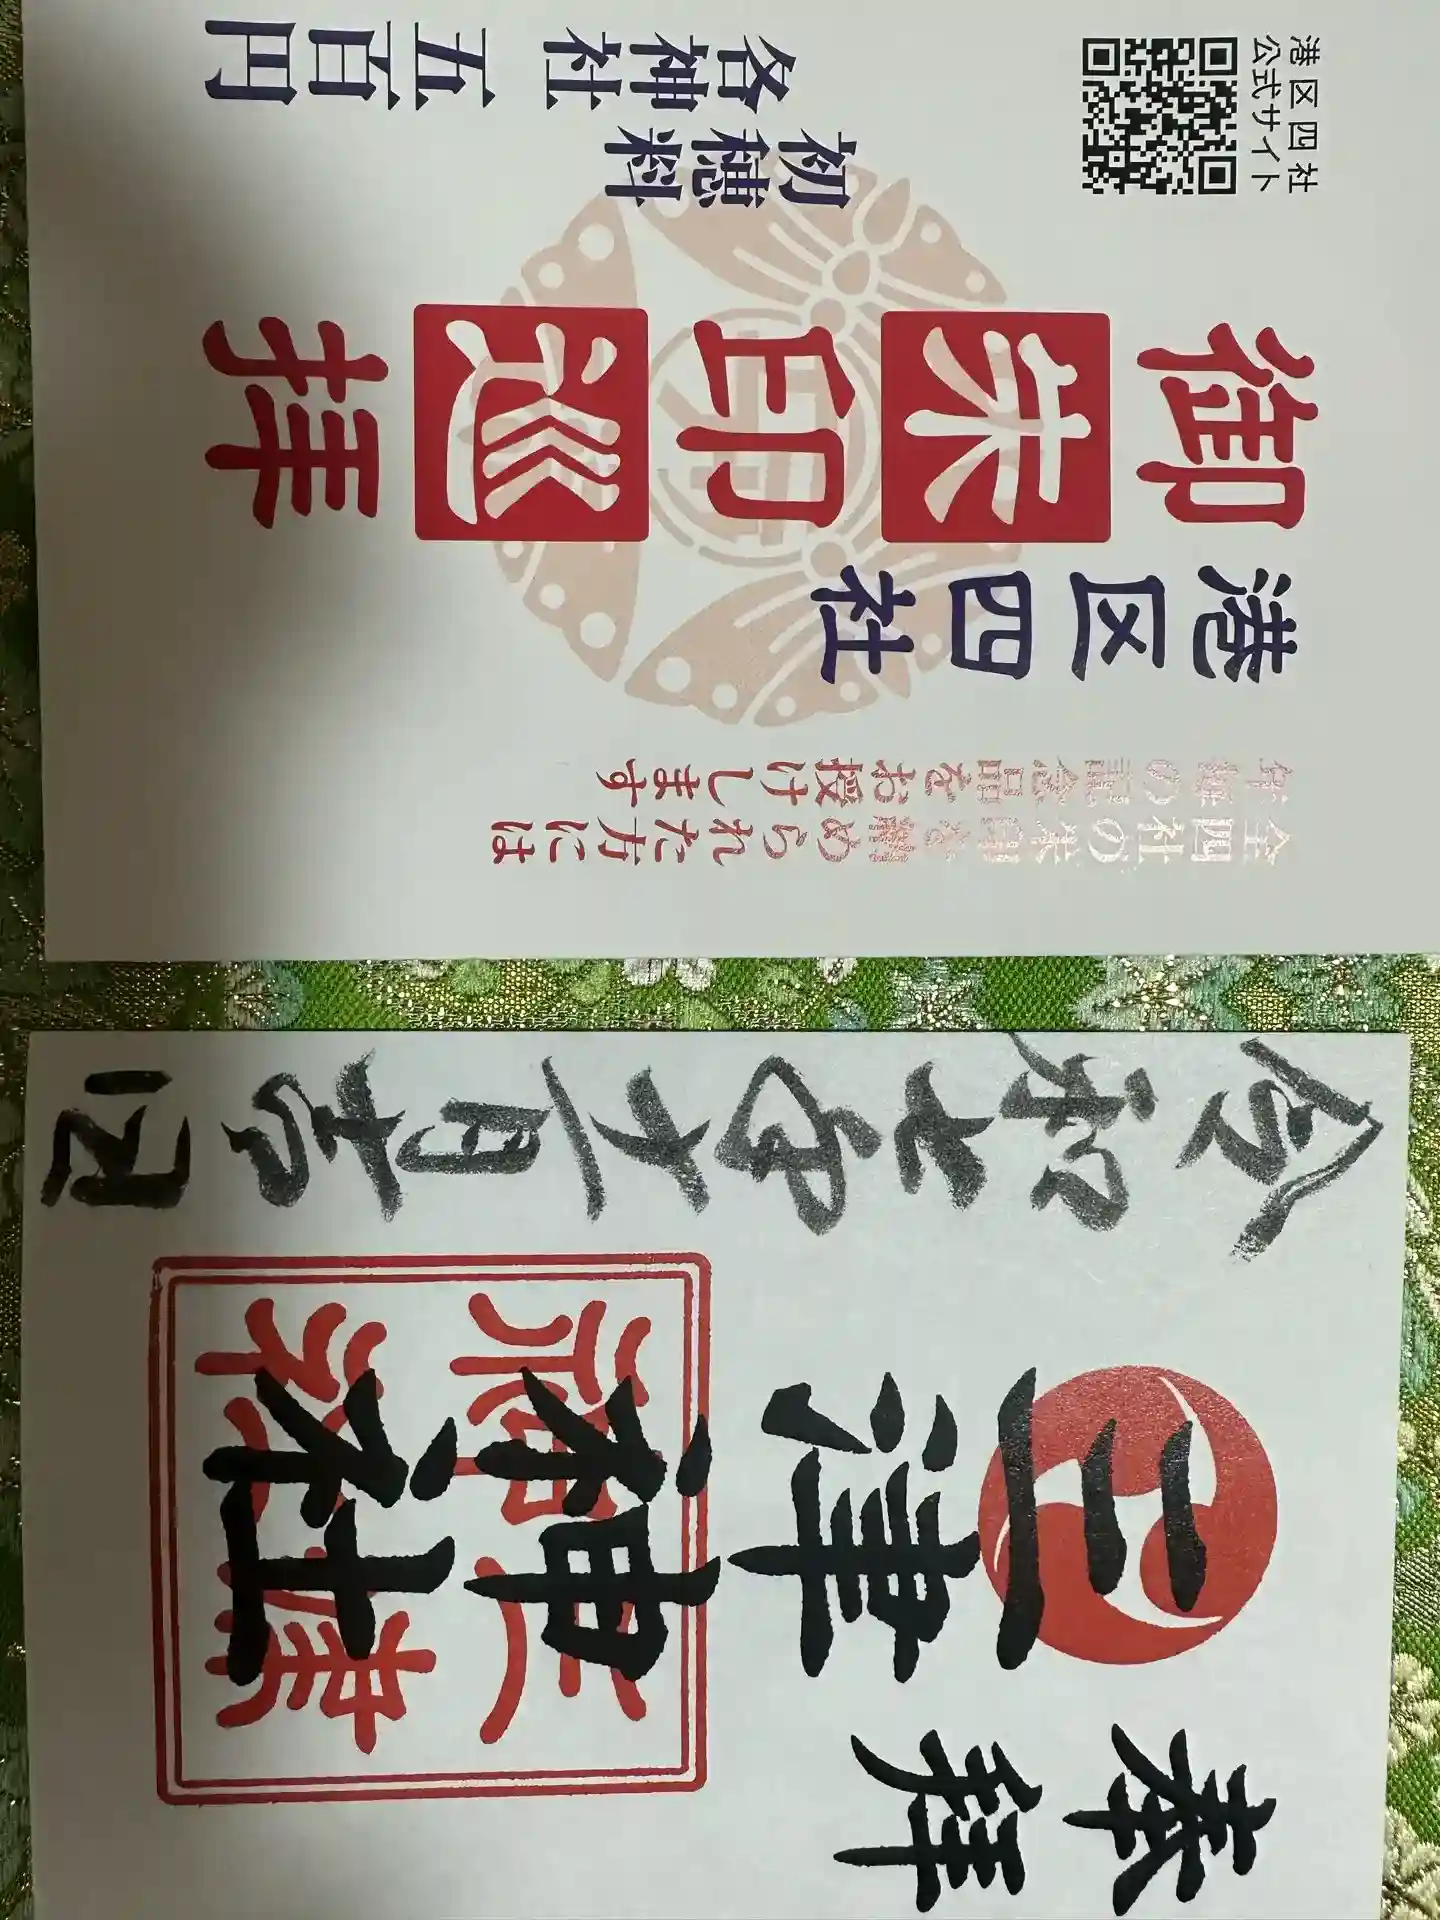 全四社の朱印を集められた方には
の記念品をお授けします
港区四社
御朱印巡拝
初穂料
各神社 五百円
港区四社
公式サイト
奉拝
三津神社
三津神社
令和七年十一月吉日